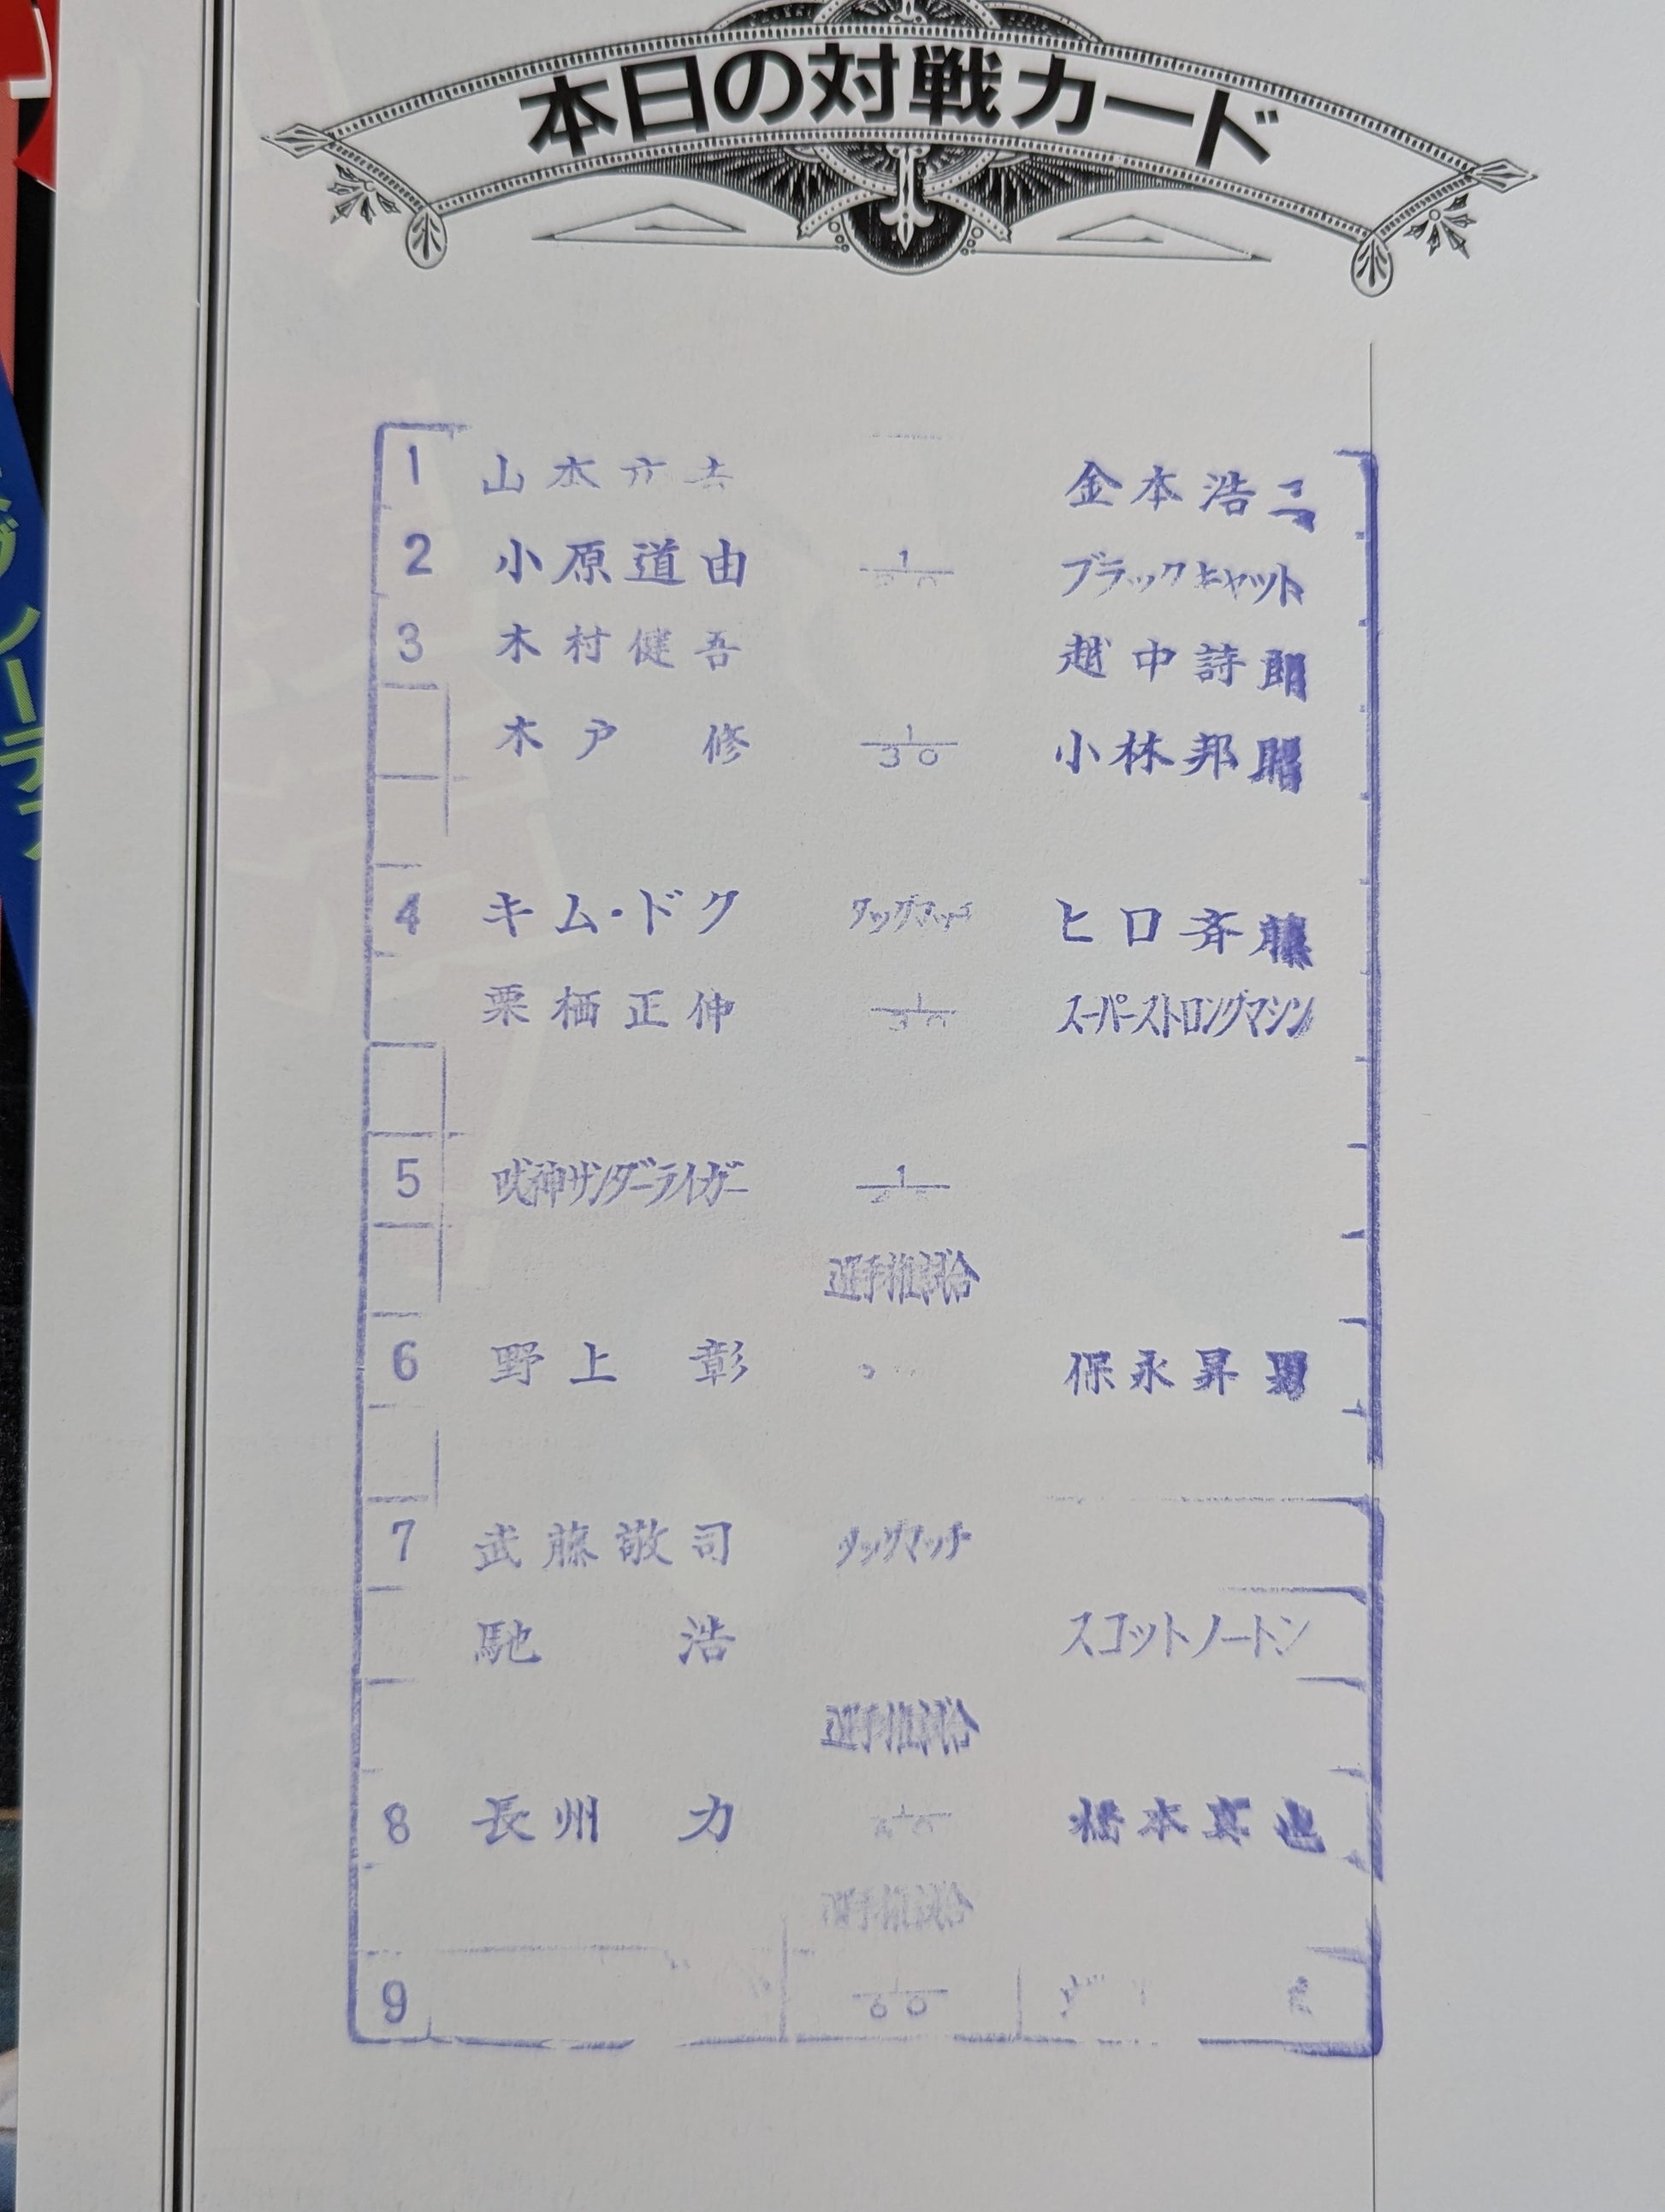 本日の対戦カード
1 山本 金本浩二
2 小原道由 1 ブラックキャット
3 木村健吾 越中詩郎
木戸 修 1/30 小林邦昭
4 キム・ドク タッグマッチ ヒロ斉藤
栗栖正伸 1/30 スーパーストロングマシン
5 獣神サンダーライガー 1
選手権試合
6 野上 彰 保永昇男
7 武藤敬司 タッグマッチ
馳 浩 スコットノートン
選手権試合
8 長州 力 1 橋本真也
9 1/60